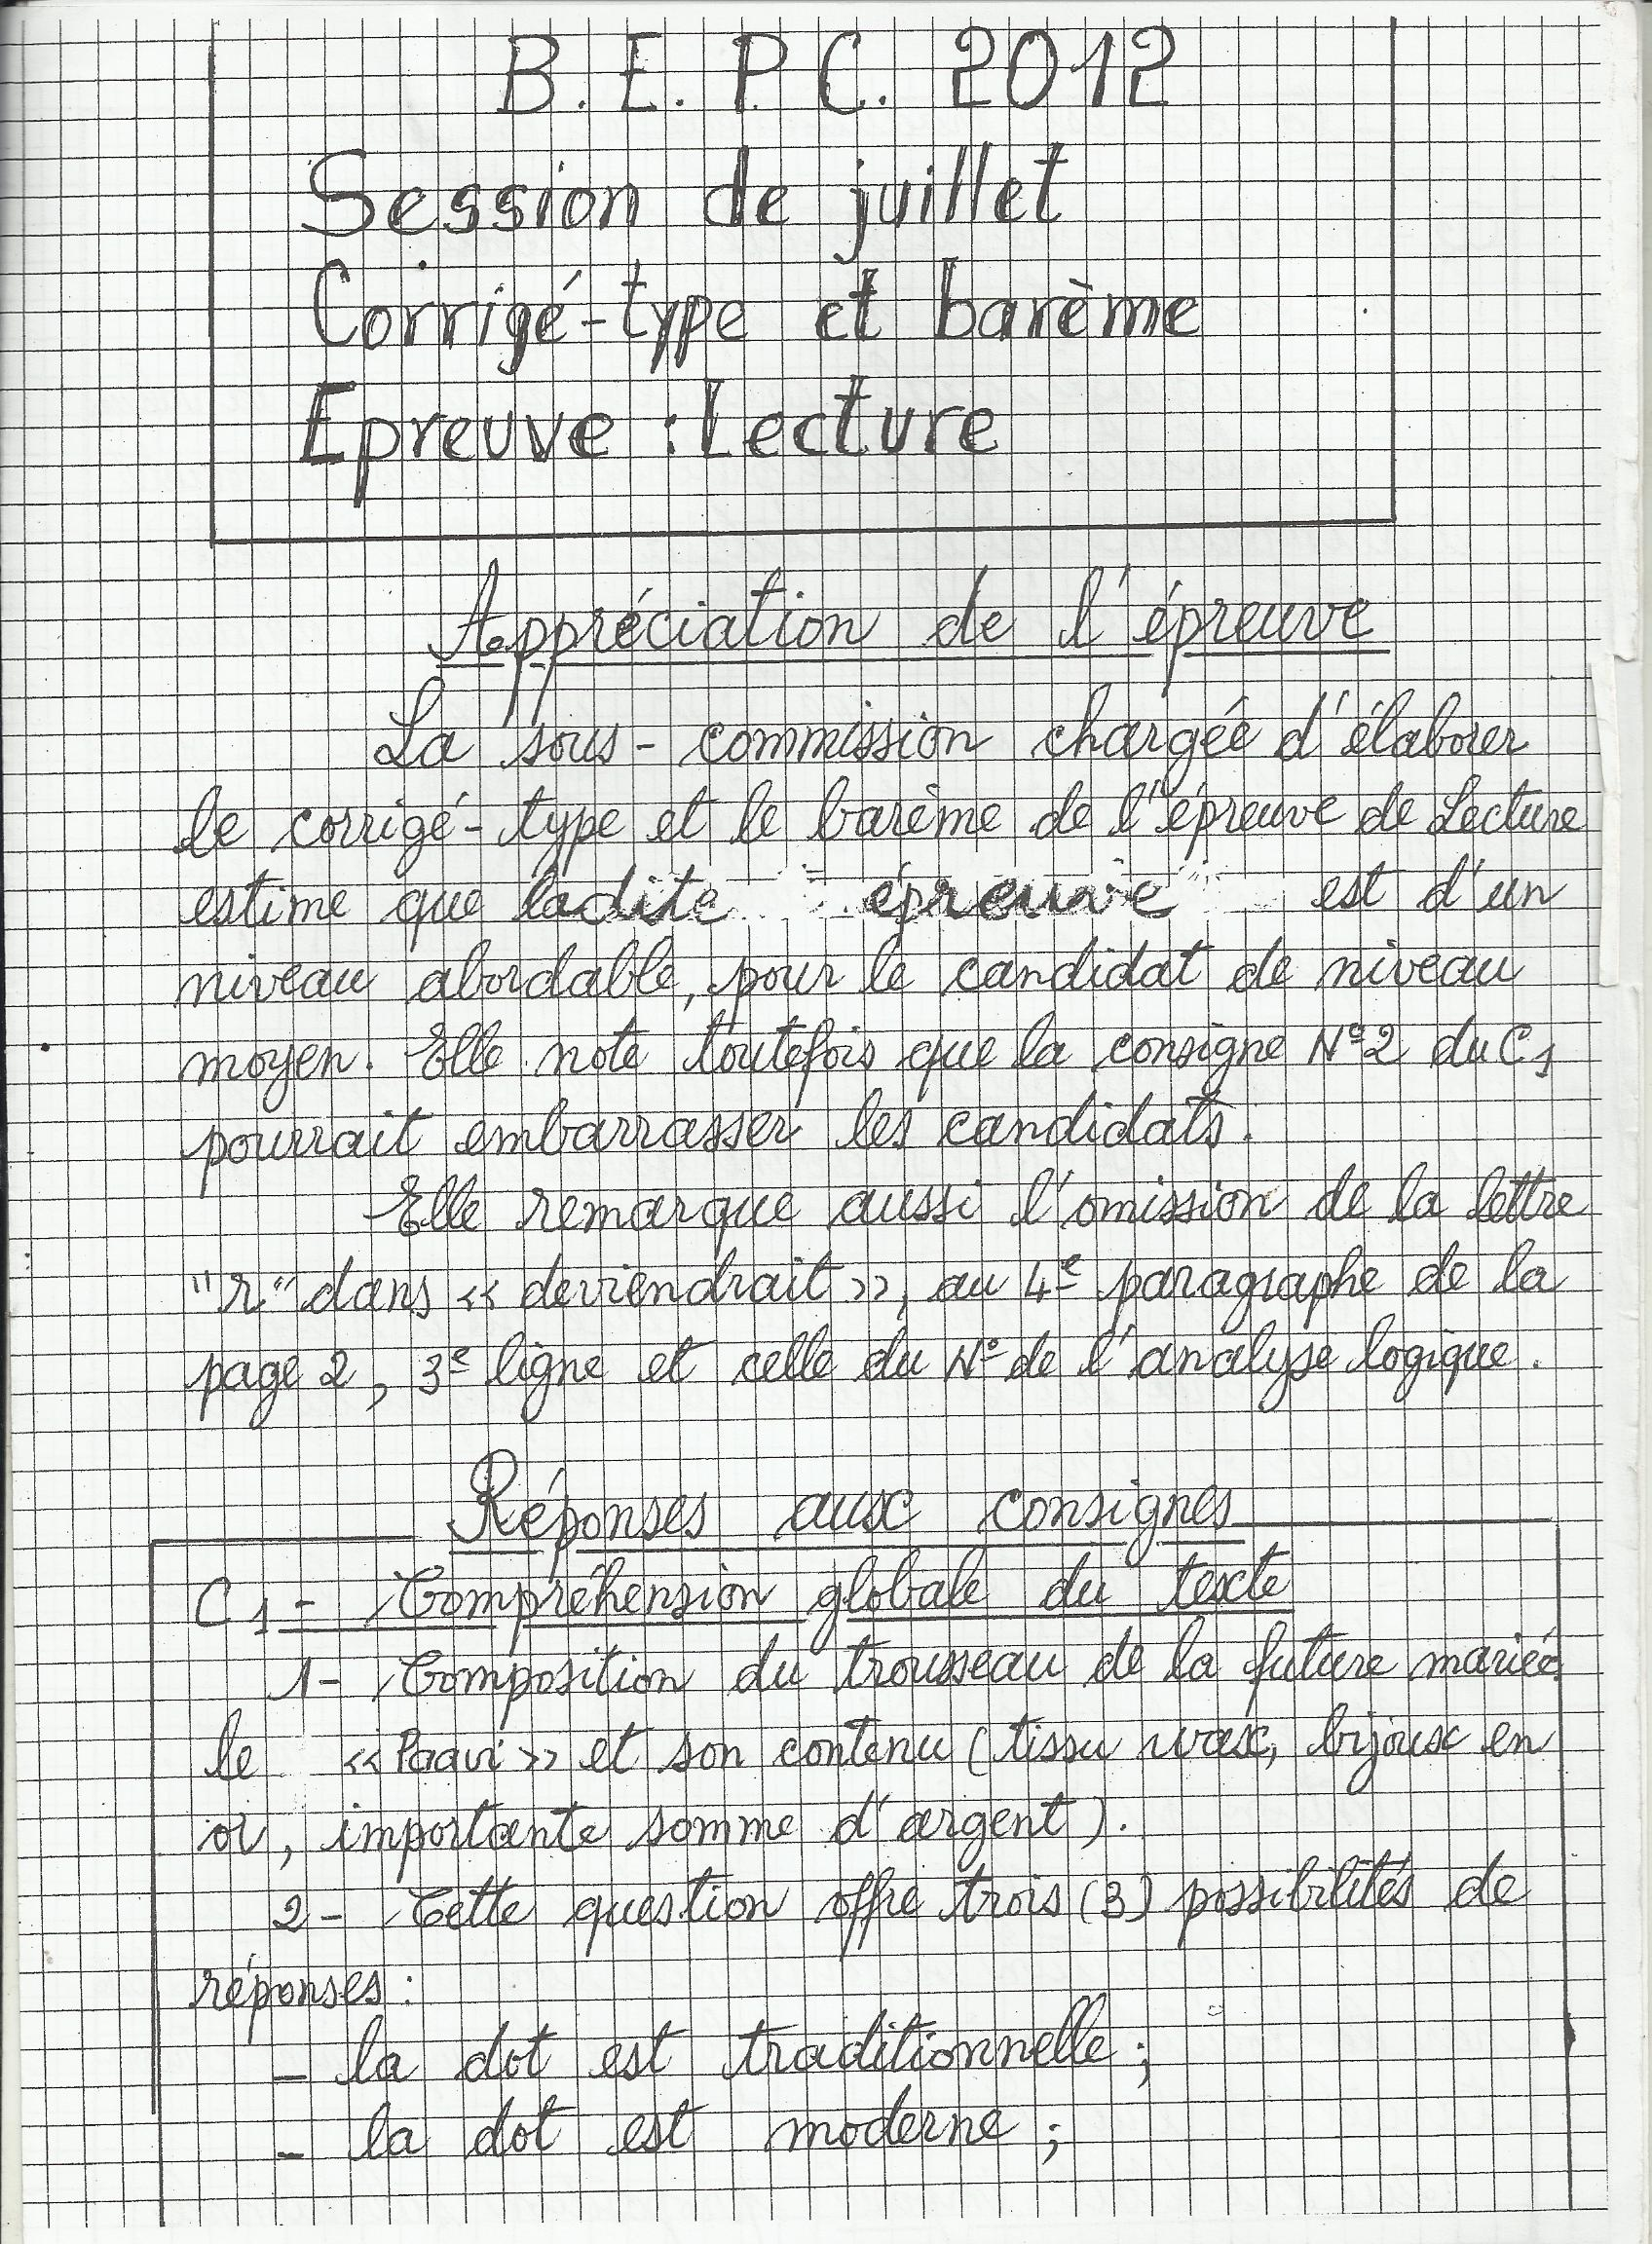 B.E.P.C. 2012
Session de juillet
Corrigé-type et barème
Epreuve : Lecture
Appréciation de l'épreuve
La sous-commission chargée d'élaborer
le corrigé-type et le barème de l'épreuve de Lecture
estime que ladite épreuve est d'un
niveau abordable, pour le candidat de niveau
moyen. Elle note toutefois que la consigne N°2 du C1
pourrait embarrasser les candidats.
Elle remarque aussi l'omission de la lettre
"r" dans « deviendrait », au 4e paragraphe de la
page 2, 3e ligne et celle du N° de l'analyse logique.
Réponses aux consignes
C1 - Compréhension globale du texte
1- Composition du trousseau de la future mariée
le « Paavi » et son contenu (tissu wax, bijoux en
or, importante somme d'argent).
2- Cette question offre trois (3) possibilités de
réponses :
- la dot est traditionnelle ;
- la dot est moderne ;